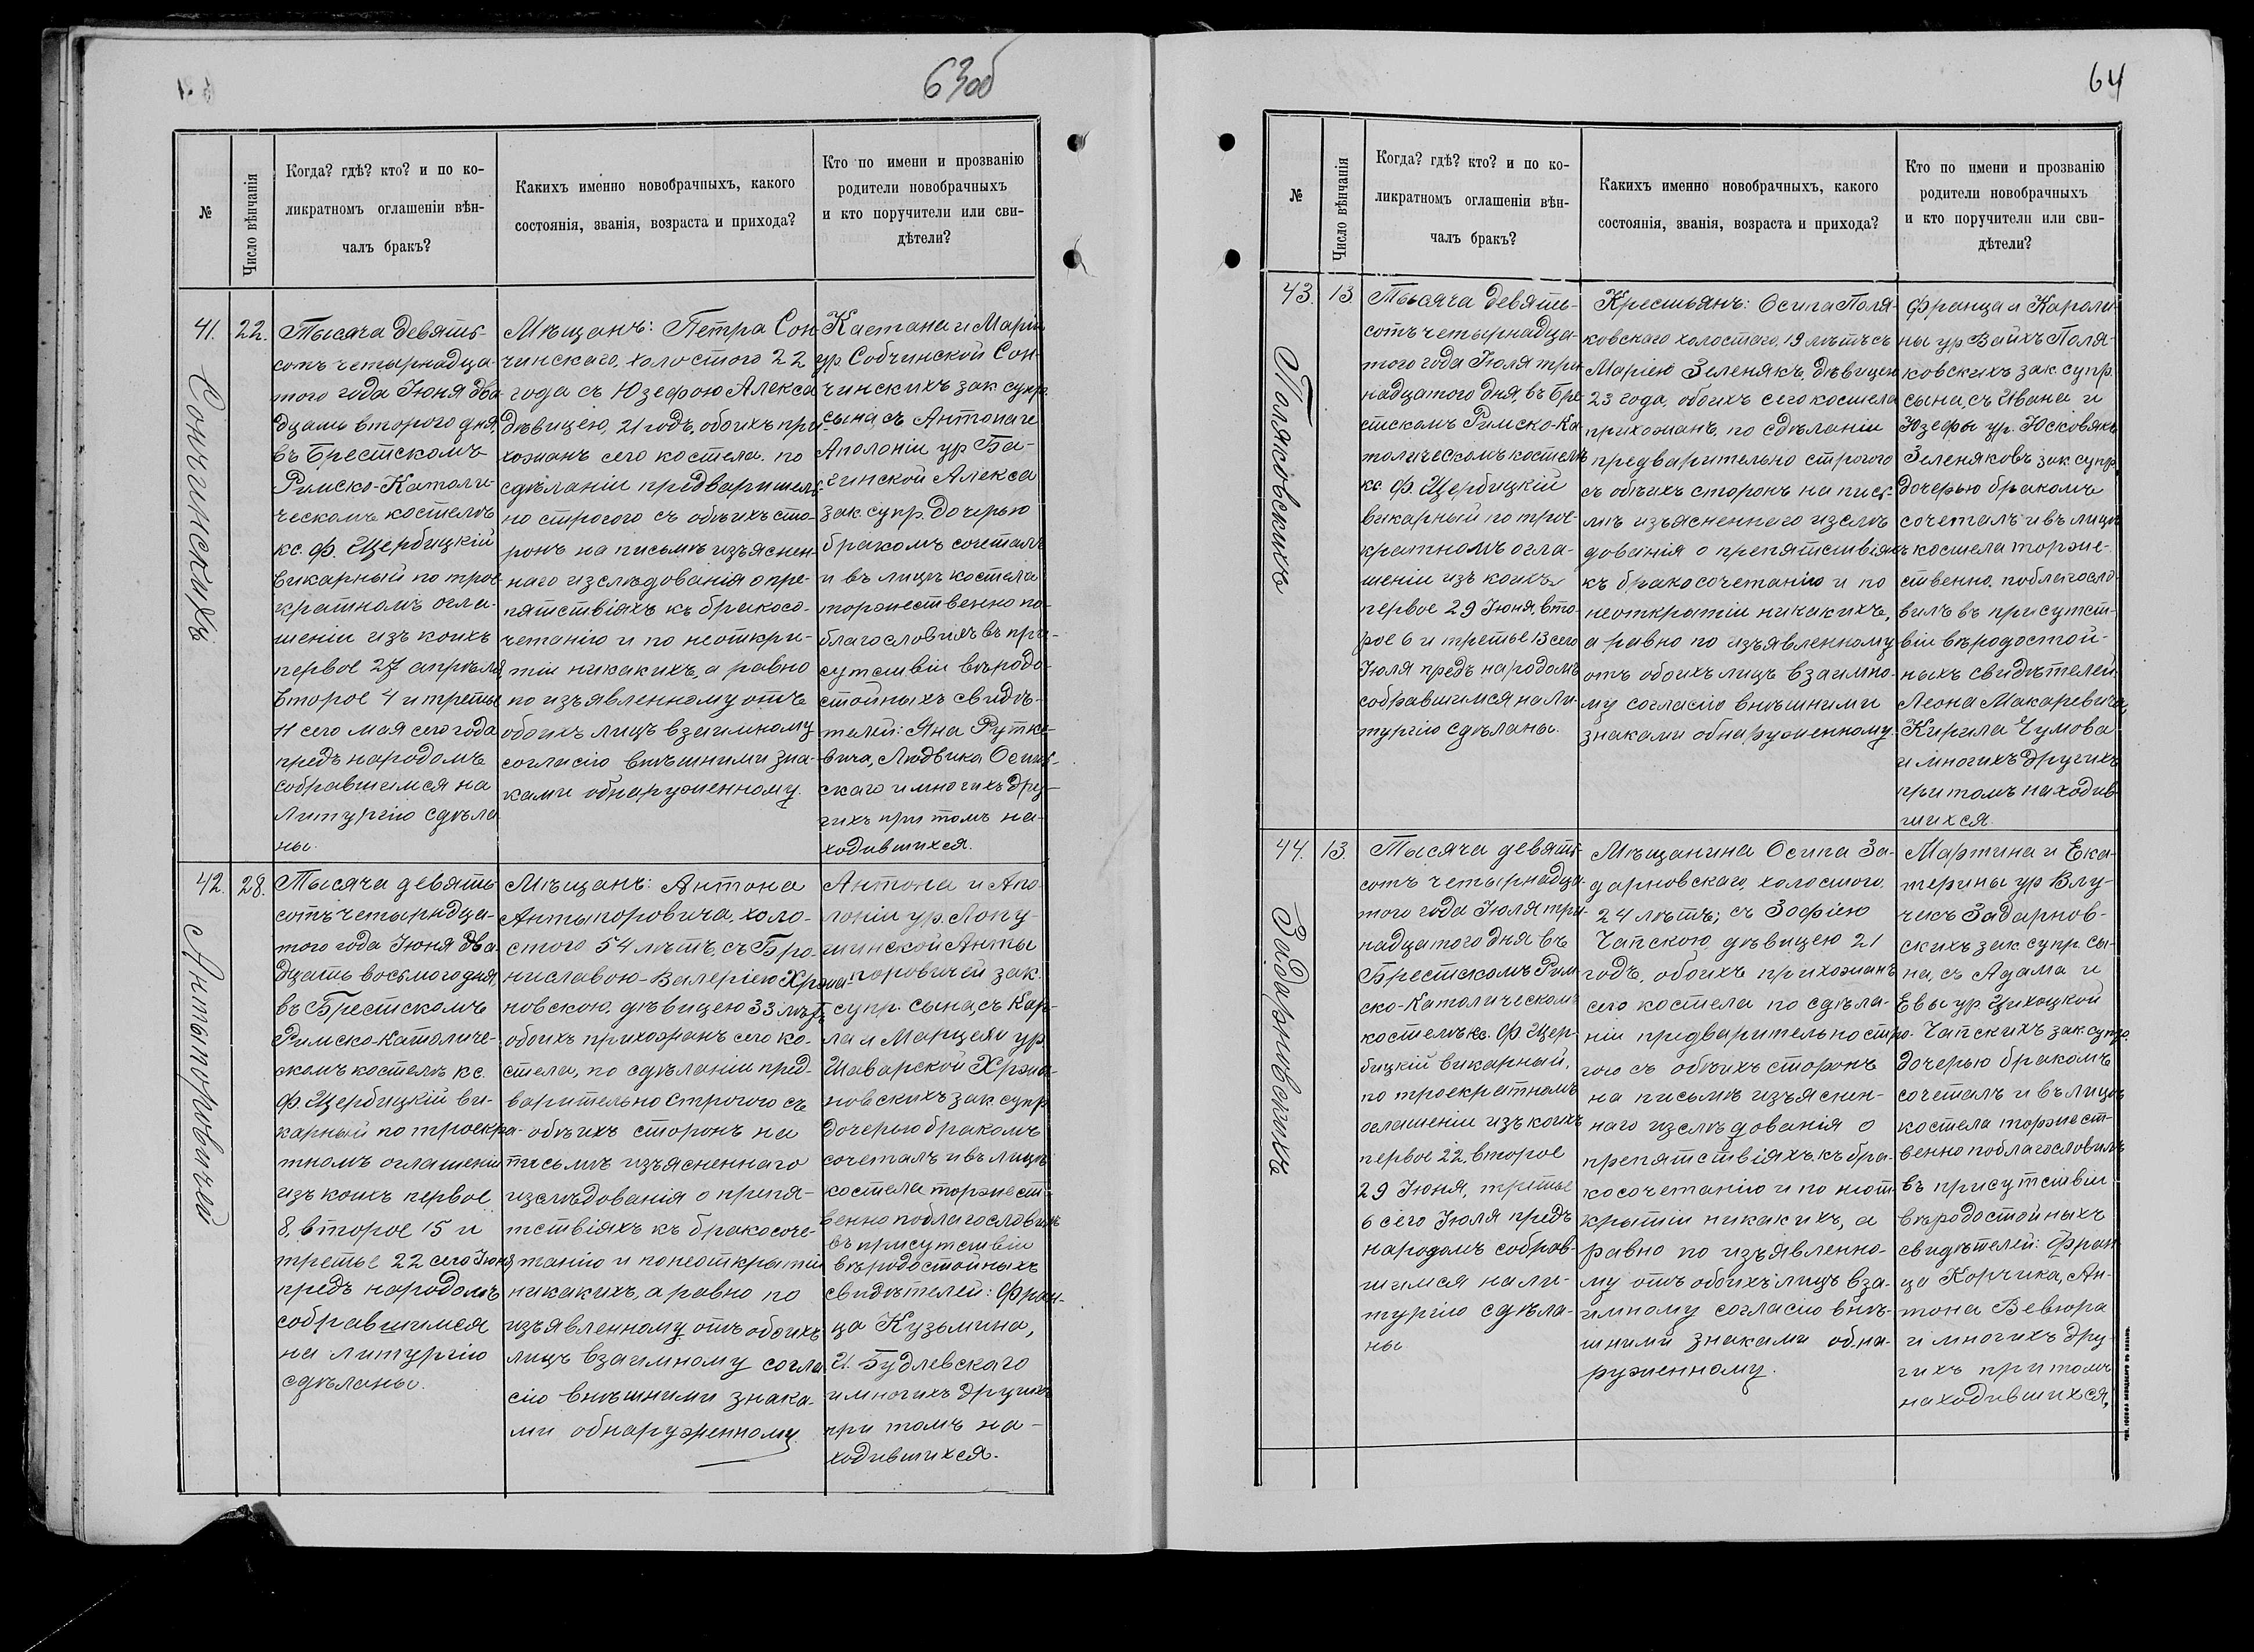 63об
№
Число вѣнчанія
Когда? гдѣ? кто? и по ко-
ликратномъ оглашеніи вѣн-
чалъ бракъ?
Какихъ именно новобрачныхъ, какого
состоянія, званія, возраста и прихода?
Кто по имени и прозванію
родители новобрачныхъ
и кто поручители или сви-
дѣтели?
41.
22.
Сончинскихъ
Тысяча девять-
сотъ четырнадца-
того года Іюня два-
дцать второго дня,
въ Брестскомъ
Римско-Католи-
ческомъ костелѣ
кс. Ф. Щербицкій
викарный по трое
кратномъ огла-
шеніи изъ коихъ
первое 27 апрѣля,
второе 4 и третье
11 сего мая сего года
предъ народомъ
собравшимся на
Литургію сдѣла
ны.
Мѣщанъ: Петра Сон-
чинскаго, холостого 22
года съ Юзефою Алекса
дѣвицею, 21 годъ, обоихъ при-
хожанъ сего костела. по
сдѣланіи предваритель-
но строгого съ обѣихъ сто-
ронъ на письмѣ изъяснен-
наго изслѣдованія о пре-
пятствіяхъ къ бракосо-
четанію и по неоткры-
тіи никакихъ, а равно
по изъявленному отъ
обоихъ лицъ взаимному
согласію внѣшними зна-
ками обнаруженному.
Каетана и Маріи
ур Собчинской Сон-
чинскихъ зак супр.
сына, съ Антона и
Аполоніи ур Ба-
гинской Алекса
зак. супр. дочерью
бракомъ сочеталъ
и въ лицѣ костела
торжественно по-
благословилъ въ при-
сутствіи вѣродо-
стойныхъ свидѣ-
телей: Яна Рутке-
вича, Людвика Осин-
скаго и многихъ дру-
гихъ при томъ на-
ходившихся.
42.
28.
Антыпоровичей
Тысяча девять
сотъ четырндца-
того года Іюня два-
дцать восьмого дня,
въ Брестскомъ
Римско-католиче-
скомъ костелѣ кс.
Ф. Щербицкій ви-
карный по троекра-
тномъ оглашеніи
изъ коихъ первое
8, второе 15 и
третье 22 сего Іюня
предъ народомъ
собравшимся
на литургію
сдѣланы.
Мѣщанъ: Антона
Антыпоровича, холо-
стого 54 лѣтъ, съ Бро-
ниславою-Валеріею Хржа-
новскою, дѣвицею 33 лѣтъ
обоихъ прихожанъ сего ко-
стела, по сдѣланіи пред-
варительно строгого съ
обѣихъ сторонъ на
письмѣ изъясненнаго
изслѣдованія о препя-
тствіяхъ къ бракосоче-
танію и по неоткрытіи
никакихъ, а равно по
изъявленному отъ обоихъ
лицъ взаимному согла
сію внѣшними знака-
ми обнаруженному.
Антона и Апо-
лоніи ур. Лопу-
шинской Анты
поровичей зак.
супр. сына, съ Кар-
ла и Марцели ур.
Шаварской Хржа-
новскихъ зак супр
дочерью бракомъ
сочеталъ и въ лицѣ
костела торжест-
венно поблагословилъ
въ присутствіи
вѣродостойныхъ
свидѣтелей: Фран-
ца Кузьмина,
И. Будлевскаго
и многихъ другихъ
при томъ на-
ходившихся.
64
№
Число вѣнчанія
Когда? гдѣ? кто? и по ко-
ликратномъ оглашеніи вѣн-
чалъ бракъ?
Какихъ именно новобрачныхъ, какого
состоянія, званія, возраста и прихода?
Кто по имени и прозванію
родители новобрачныхъ
и кто поручители или сви-
дѣтели?
43.
13.
Поляковскихъ
Тысяча девять-
сотъ четырнадца-
того года Іюля три-
надцатого дня, въ Бре-
стскомъ Римско-Ка
толическомъ костелѣ
кс. Ф. Щербицкій
викарный по трое-
кратномъ огла-
шеніи изъ коихъ
первое 29 Іюня, вто-
рое 6 и третье 13 сего
Іюля предъ народомъ
собравшимся на Ли-
тургію сдѣланы.
Крестьянъ: Осипа Поля-
ковскаго холостаго, 19 лѣтъ съ
Маріею Зеленякъ, дѣвицею
23 года, обоихъ сего костела
прихожанъ, по сдѣланіи
предварительно строгого
съ обѣихъ сторонъ на пись-
мѣ изъясненнаго изслѣ
дованія о препятствіяхъ
къ бракосочетанію и по
неоткрытіи никакихъ,
а равно по изъявленному
отъ обоихъ лицъ взаимно-
му согласію внѣшними
знаками обнаруженному.
Франца и Кароли-
ны ур Вайхъ Поля-
ковскихъ зак. супр.
сына, съ Ивана и
Юзефы ур. Юсковякъ
Зеленяковъ зак. супр
дочерью бракомъ
сочеталъ и въ лицѣ
костела торже-
ственно поблагосло-
вилъ въ присутст-
віи вѣродостой-
ныхъ свидѣтелей:
Леона Макаревича,
Кирила Чумова
и многихъ другихъ
при томъ находив-
шихся.
44.
13.
Задарновскихъ
Тысяча девять-
сотъ четырнадца-
того года Іюля три-
надцатого дня въ
Брестскомъ Рим-
ско-Католическомъ
костелѣ кс. Ф. Щер-
бицкій викарный,
по троекратномъ
оглашеніи изъ коихъ
первое 22, второе
29 Іюня, третье
6 сего Іюля предъ
народомъ собрав-
шимся на ли-
тургію сдѣла-
ны
Мѣщанина Осипа За-
дарновскаго, холостого,
24 лѣтъ; съ Зофіею
Чапскою, дѣвицею 21
годъ, обоихъ прихожанъ
сего костела по сдѣла-
ніи предварительно стро-
гого съ обѣихъ сторонъ
на письмѣ изъяснен-
наго изслѣдованія о
препятствіяхъ къ бра-
косочетанію и по неот
крытіи никакихъ, а
равно по изъявленно-
му отъ обоихъ лицъ вза-
имному согласію внѣ-
шними знаками обна-
руженному.
Мартина и Ека-
терины ур Влу-
чекъ Задарнов-
скихъ зак. супр. сы-
на, съ Адама и
Евы ур. Цихоцкой
Чапскихъ зак. супр.
дочерью бракомъ
сочеталъ и въ лицѣ
костела торжест-
венно поблагословилъ
въ присутствіи
вѣродостойныхъ
свидѣтелей: Фран
ца Корчика, Ан-
тона Вевюра
и многихъ дру-
гихъ при томъ
находившихся.